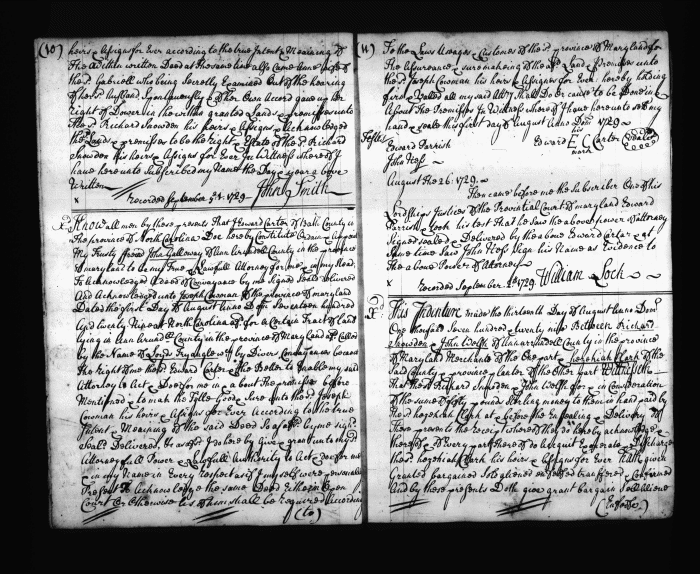 (10)
heirs & Assigns for Ever according to the true Intent & Meaning of
The within written Deed at the same time also came Anne wife of
the sd. Gabriell who being Secretly Examined Out of the hearing
of her sd. husband Spontaneously & of her Own Accord gave up her
right of Dower in the within granted Lands & promisses unto
the sd. Richard Snowden his heirs & Assigns & Acknowledged
the Lands & promisses to be the Right & Estate of the sd. Richard
Snowden his heirs & Assigns for Ever In Witness whereof I
have hereunto Subscribed my Name the Day & year above
Written
John Smith
x Recorded September 2d. 1729
Know all men by these presents That I Edward Carter of Bath County in
the province of North Carolina Doe hereby Constitute Ordain & Appoint
My Trusty friend John Galloway of Ann Arundell County in the province
of Maryland to be my True & Lawfull Attorney for me & in my Name
To Acknowledge A Deed of Conveyance by me Signed Sealed Delivered
And Acknowledged unto Joseph Cowman of the province of Maryland
Dated the first Day of August Anno Dom Seventeen hundred
And twenty Nine at North Carolina for a Certain Tract of Land
lying in Ann Arundll County in the province of Maryland Called
by the Name of Lords by Divers Conveyances became
the right of me the sd. Edward Carter & the Better to Enable my said
Attorney to Act & Doe for me in & about the premisses before
Mentioned & to make the Title Good & Sure unto the sd. Joseph
Cowman his heirs & Assigns for Ever According to the true
Intent & Meaning of the said Deed by me signed
Sealed & Delivered, I do hereby give & grant unto my sd.
Attorney full Power & Lawfull Authority to Act & Doe for me
& in my Name in Every Respect as if I my self were personally
Present to Acknowledge the same Deed Either in Open
Court or Otherwise as Shall be Required According
(to)
(11)
To the Laws Usages & Customs of the sd. province of Maryland for
The Assurance & sure making of the sd. Land & Premisses unto
the sd. Joseph Cowman his heirs & Assigns for Ever hereby holding
firm & Valled all my said Atty. shall Do or cause to be Done in &
About The Premisses In Witness whereof I have hereunto set my
hand & seale this first day of August Anno Dom 1729
Testes
his
Edward E C Carter (Seale)
mark
Edward Parrish
John
August the 26. 1729.
Then came before me the Subscriber One of his
Lordships Justices of the Provintial Court of Maryland Edward
Parrish & took his Oath That he saw the above power of Attorney
Signed sealed & Delivered by the above Edward Carter & at
Same time Saw John Sign his Name as Evidence to
the above Power of Attorney
William Lock
x Recorded September 2d. 1729
This Indenture made the thirteenth Day of August Anno Dom
One thousand Seven hundred & twenty nine Between Richard
Snowden & John Welsh of Annarrundell County in the province
of Maryland Merchants of the One part & Hezekiah Clark of the
Said County & province of the Other part Witnesseth
That the sd. Richard Snowden & John Welsh for & in Consideration
of the sume of fifty pounds sterling money to them in hand paid by
the sd. hezekiah Clark at & before the Ensealing & Delivery of
These presents the receipt whereof they do hereby acknowledge &
thereof & of Every part thereof do acquit Exonerate & Discharge
the sd. hezekiah Clark his heirs & Assigns for Ever hath given
Granted bargained Sold aliened enfeoffed transferred & Confirmed
And by these presents Doth give grant bargain sell aliene
(Enfeoffe)